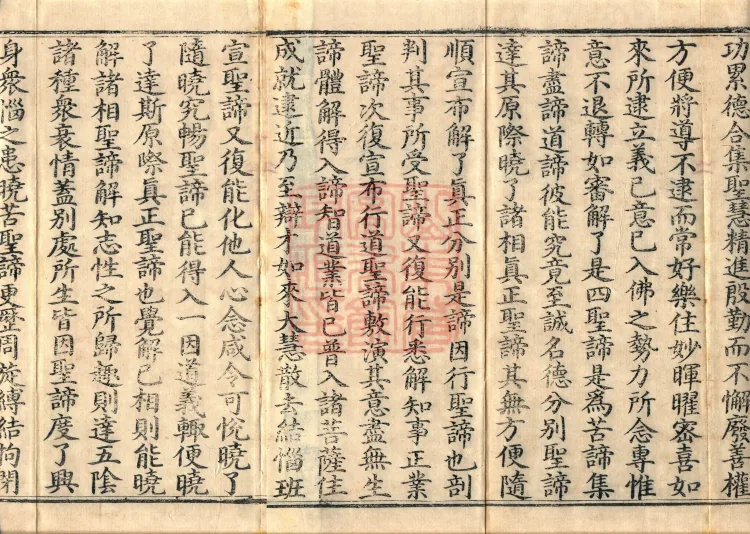 功累德合集聖慧精進殷勤而不懈廢善權
方便將導不逮而常好樂住妙暉曜宻喜如
來所建立義已意已入佛之勢力所念專惟
意不退轉如審解了是四聖諦是為苦諦集
諦盡諦道諦彼能究竟至誠名德分別聖諦
達其原際曉了諸相眞正聖諦其無方便隨
順宣布解了真正分別是諦因行聖諦也剖
判其事所受聖諦又復能行悉解知事正業
聖諦次復宣布行道聖諦敷演其意盡無生
諦體解得入諦智道業皆已普入諸菩薩住
成就建近乃至辯才如來大慧散去結惱班
宣聖諦又復能化他人心念咸令可悅曉了
隨曉究暢聖諦已能得入一因道義輙便曉
了達斯原際真正聖諦也覺解已相則能曉
解諸相聖諦解知志性之所歸趣則達五陰
諸種衆衰情蓋別處所生皆因聖諦度了興
身衆惱之患曉苦聖諦更歷周旋縛結拘閉